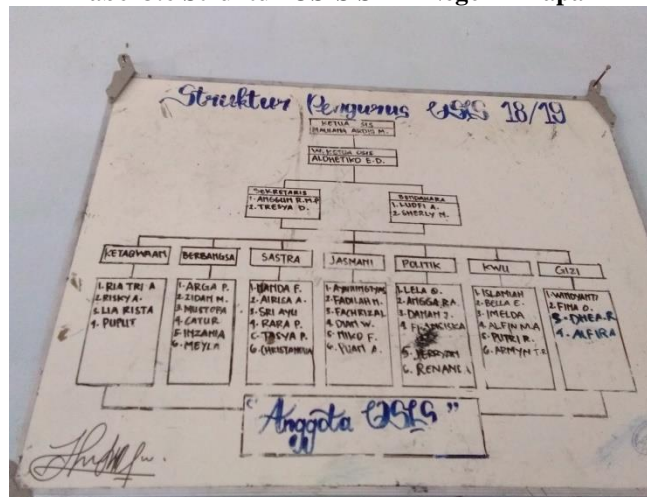 Struktur Pengurus OSIS 18/19
KETUA
MAULANA ARDIS M.
W. KETUA OSIS
ALDHETIKO E.D.
SEKRETARIS
1. ANGGUN R.M.P
2. TRESYA D.
BENDAHARA
1. LUDFI A.
2. SHERLY M.
KETAQWAAN
1. RIA TRI A
2. RISKY A.
3. LIA RISTA
4. PUPUT
BERBANGSA
1. ARGA P.
2. ZIDAN M.
3. MUSTOFA
4. CATUR
5. IMZANIA
6. MEYLA
SASTRA
1. NANDA F.
2. AIRISA A.
3. SRI AYU
4. RARA P.
5. TASYA P.
6.
JASMANI
1.
2. FADILAH M.
3. FACHRIZAL
4. DIAN W.
5. MIKO F.
6.
POLITIK
1. LELA O.
2. ANGGA RA.
3.
4. FRANSISKA
5.
6.
KWU
1. ISLAMIAH
2. BELLA E.
3. IMELDA
4. ALFIN M.A
5. PUTRI R.
6. ARMYN T.
GIZI
1. WINDYANTI
2. FINA O.
3. DHEA.R
4. ALFIRA
"Anggota OSIS"